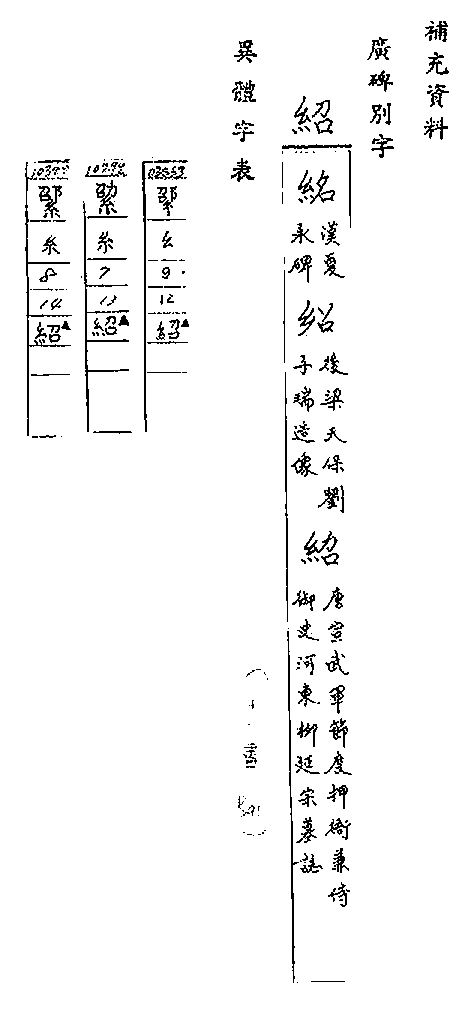 補充資料
廣碑別字
紹
紹
漢夏
承碑
紹
後梁天保劉
子瑞造像
紹
唐宣武軍節度押衙兼侍
御史河東柳延宗墓誌
異體字表
糸
9
12
紹▲
糸
7
13
紹▲
糸
8
14
紹▲